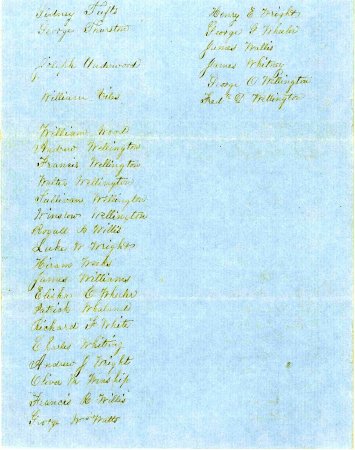 Sidney Tufts
George Thurston
Joseph Underwood
William Viles
William Wood
Andrew Wellington
Francis Wellington
Walter Wellington
Sullivan Wellington
Winslow Wellington
Royall A Willis
Luke W Wright
Hiram Weeks
James Williams
Elisha C Wheeler
Patrick
Richard F White
Charles Whitney
Andrew J Wright
Oliver M Winship
Francis R Willis
George Wm Watts
Henry E Wright
George F Wheeler
James Wallis
James Whitney
George O Wellington
Fredk D Wellington